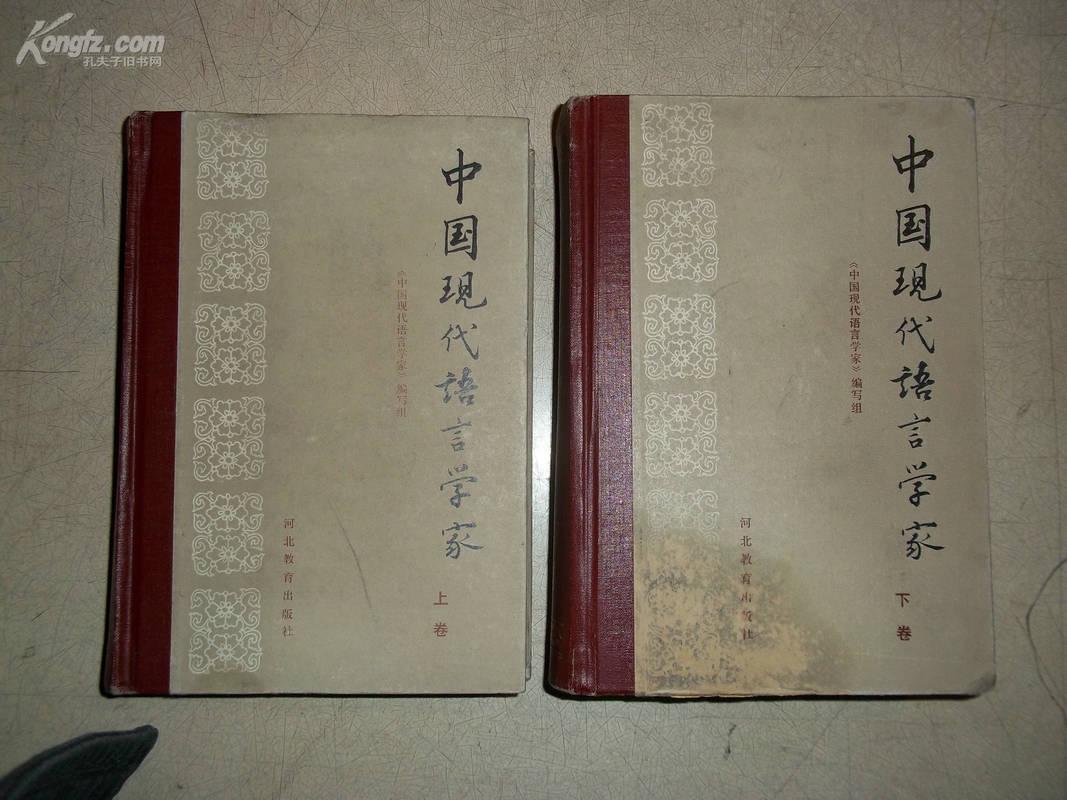 Kongfz.com
孔夫子旧书网
中国现代語言学家
上卷
《中国现代语言学家》编写组
河北教育出版社
中国现代語言学家
下卷
《中国现代语言学家》编写组
河北教育出版社